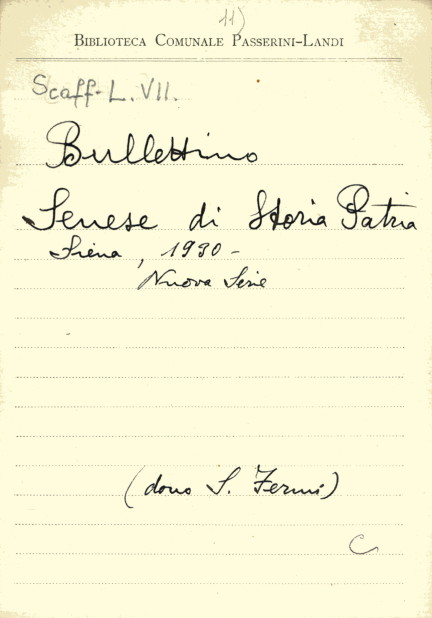 11)
BIBLIOTECA COMUNALE PASSERINI-LANDI
Scaff. L. VII.
Bullettino
Senese di Storia Patria
Siena, 1930 -
Nuova Serie
(dono S. Fermi)
C